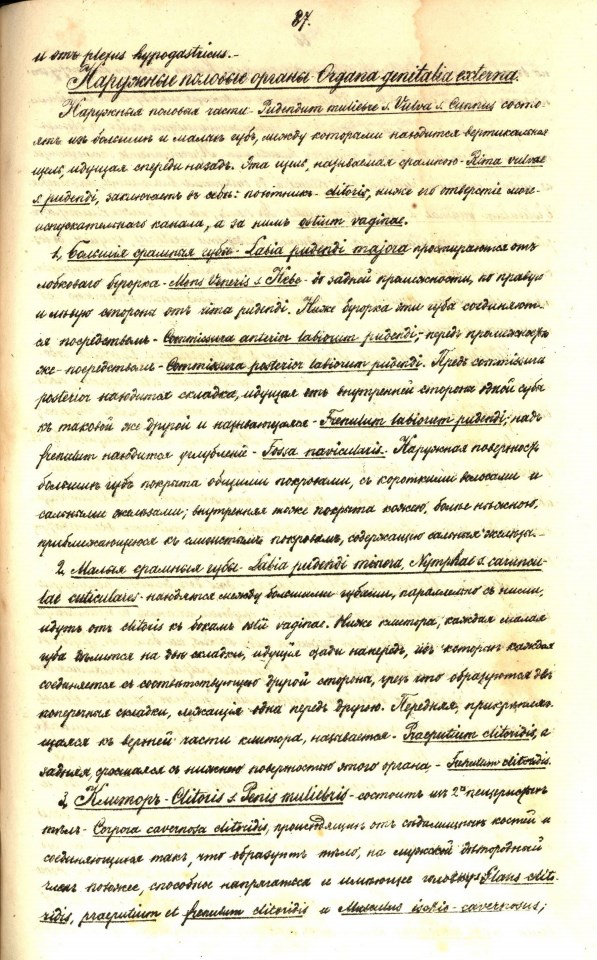 87.
и отъ plexus hypogastricus.-
Наружные половые органы Organa genitalia externa.
Наружныя половыя части - Pudendum muliebre s. Vulva s. Cunnus состо-
ятъ изъ большихъ и малыхъ губъ, между которыми находится вертикальная
щель, идущая спереди назадъ. Эта щель, называемая срамною - Rima vulvae
s. pudendi, заключаетъ въ себѣ: похотникъ - clitoris, ниже его отверстіе моче-
испускательнаго канала, а за нимъ ostium vaginae.
1, Большія срамныя губы - Labia pudendi majora простираются отъ
лобковаго бугорка - Mons Veneris s. Hebe - до задней промежности, по правую
и лѣвую сторону отъ rima pudendi. Ниже бугорка эти губы соединяют-
ся посредствомъ - Commissura anterior labiorum pudendi, - передъ промежностью
же - посредствомъ - Commissura posterior labiorum pudendi. Предъ commissura
posterior находится складка, идущая отъ внутренней стороны одной губы
къ таковой же другой и называющаяся - Frenulum labiorum pudendi; надъ
frenulum находится углубленіе - Fossa navicularis. Наружная поверхность
большихъ губъ покрыта общими покровами, съ короткими волосами и
сальными железами; внутренняя тоже покрыта кожею, болѣе нѣжною,
приближающеюся къ слизистымъ покровамъ, содержащею сальныя железы.-
2. Малыя срамныя губы - Labia pudendi minora, Nymphae s. caruncu-
lae cuticulares - находятся между большими губами, параллельно съ ними,
идутъ отъ clitoris къ бокамъ ostii vaginae. Ниже клитора, каждая малая
губа дѣлится на двѣ складки, идущія сзади напередъ, изъ которыхъ каждая
соединяется съ соотвѣтствующею другой стороны, чрезъ что образуются двѣ
поперечныя складки, лежащія одна передъ другою. Передняя, прикрѣпляю-
щаяся къ верхней части клитора, называется - Praeputium clitoridis, а
задняя, сросшаяся съ нижнею поверхностью этого органа, - Frenulum clitoridis.
3, Клиторъ - Clitoris s. Penis muliebris - состоитъ изъ 2ˣ пещеристыхъ
тѣлъ - Corpora cavernosa clitoridis, происходящихъ отъ сѣдалищныхъ костей и
соединяющихся такъ, что образуютъ тѣло, на мужской дѣтородный
членъ похожее, способное напрягаться и имѣющее головку Glans clito-
ridis, praeputium et frenulum clitoridis и Musculus ischio-cavernosus;